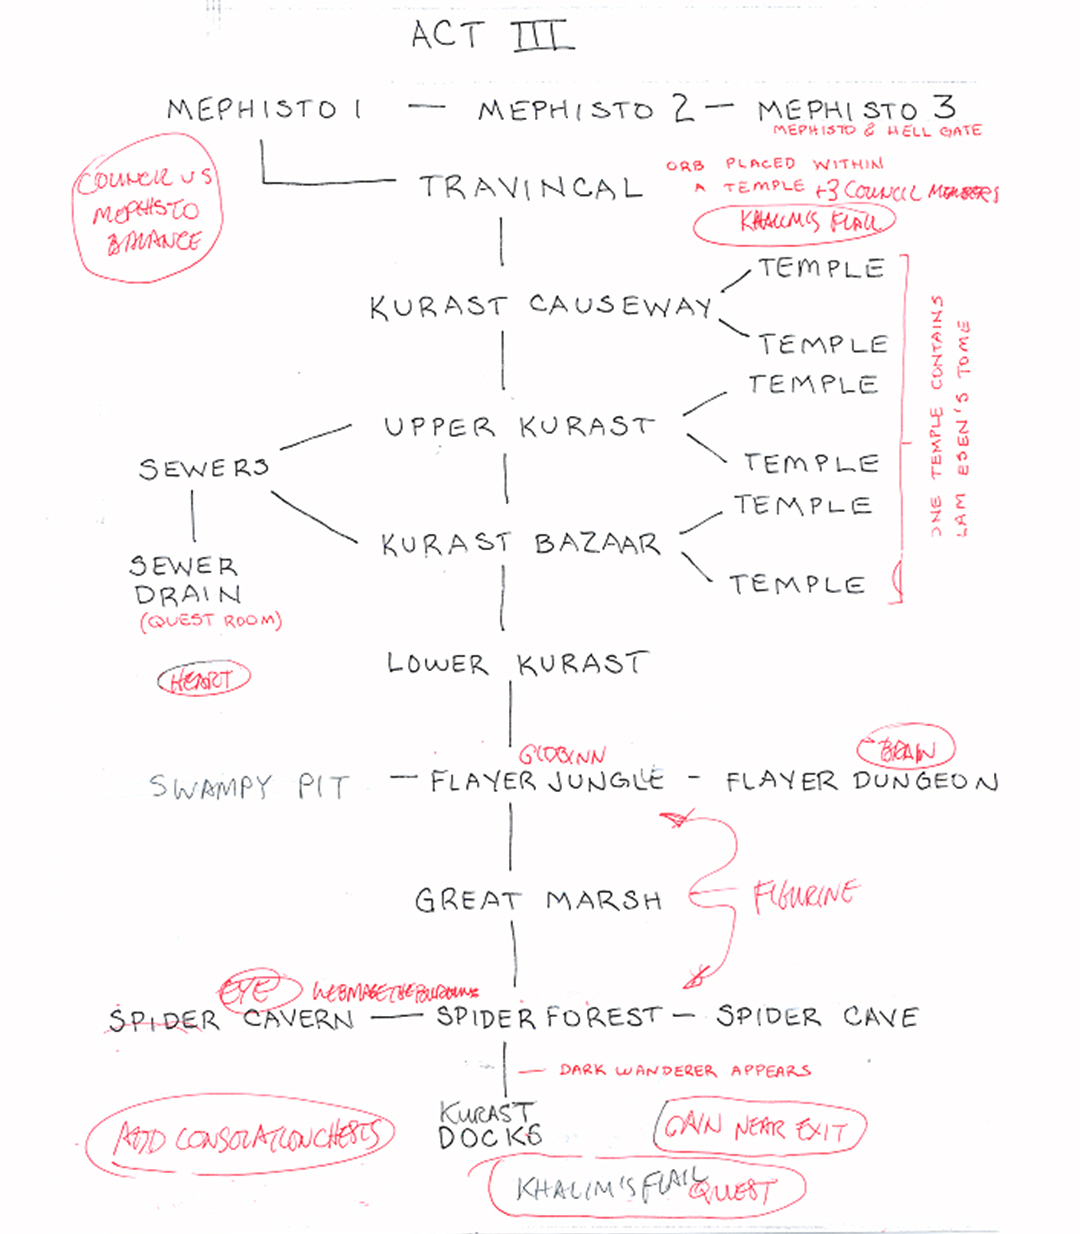 ACT III
MEPHISTO 1 — MEPHISTO 2 — MEPHISTO 3
MEPHISTO & HELL GATE
COUNCIL VS
MEPHISTO
BALANCE
TRAVINCAL
ORB PLACED WITHIN
A TEMPLE +3 COUNCIL MEMBERS
KHALIM'S FLAIL
TEMPLE
KURAST CAUSEWAY
TEMPLE
TEMPLE
UPPER KURAST
TEMPLE
SEWERS
TEMPLE
KURAST BAZAAR
TEMPLE
ONE TEMPLE CONTAINS
LAM ESEN'S TOME
SEWER
DRAIN
(QUEST ROOM)
HEART
LOWER KURAST
GIDBINN
BRAIN
SWAMPY PIT — FLAYER JUNGLE - FLAYER DUNGEON
GREAT MARSH
FIGURINE
EYE
SPIDER CAVERN — SPIDER FOREST — SPIDER CAVE
— DARK WANDERER APPEARS
KURAST
DOCKS
ADD CONSOLATION CHESTS
NEAR EXIT
KHALIM'S FLAIL QUEST